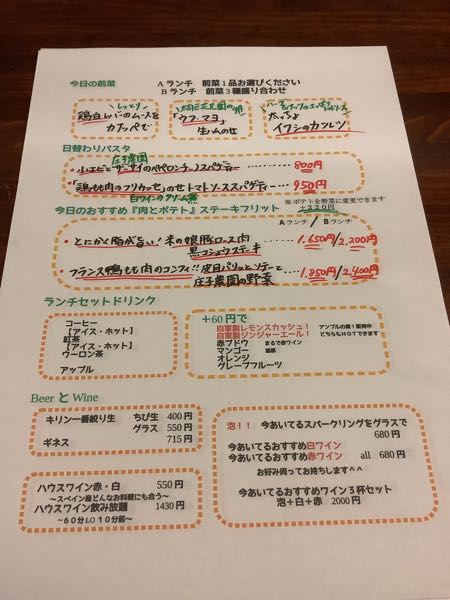 今日の前菜
Aランチ 前菜1品お選びください
Bランチ 前菜3種盛り合わせ
しっとり
鶏白レバーのムースを
カフェぺで
太田忠花見園の卵
「ウフ・マヨ」
生ハムのせ
太っちょ
イワシのカツレツ
日替わりパスタ
庄子農園
小エビとザーサイのペペロンチーノスパゲティー 800円
「鶏もも肉のフリカッセ」のせトマトソーススパゲティー 950円
白ワインのクリーム煮
※ポテトを野菜に変更できます
+220円
今日のおすすめ『肉とポテト』ステーキフリット
Aランチ / Bランチ
・とにかく脂が旨い!米の娘豚ロース肉
黒コショウステーキ 1,650円/2,200円
・フランス鴨もも肉のコンフィ!!皮目パリッとソテーと
庄子農園の野菜 1,850円/2,400円
ランチセットドリンク
コーヒー
【アイス・ホット】
紅茶
【アイス・ホット】
ウーロン茶
アップル
+60円で
自家製レモンスカッシュ! アンプルの横!販売中
自家製ジンジャーエール! どちらもHOTできます
赤ブドウ まるで赤ワイン
マンゴー 濃厚
オレンジ
グレープフルーツ
Beer と Wine
キリン一番絞り生 ちび生 400円
グラス 550円
ギネス 715円
泡!! 今あいてるスパークリングをグラスで
680円
今あいてるおすすめ白ワイン
今あいてるおすすめ赤ワイン all 680円
お好み伺ってお持ちします^^
今あいてるおすすめワイン3杯セット
泡+白+赤 2000円
ハウスワイン赤・白 550円
~スペイン産どんなお料理にも合う~
ハウスワイン飲み放題 1430円
~60分LO10分前~